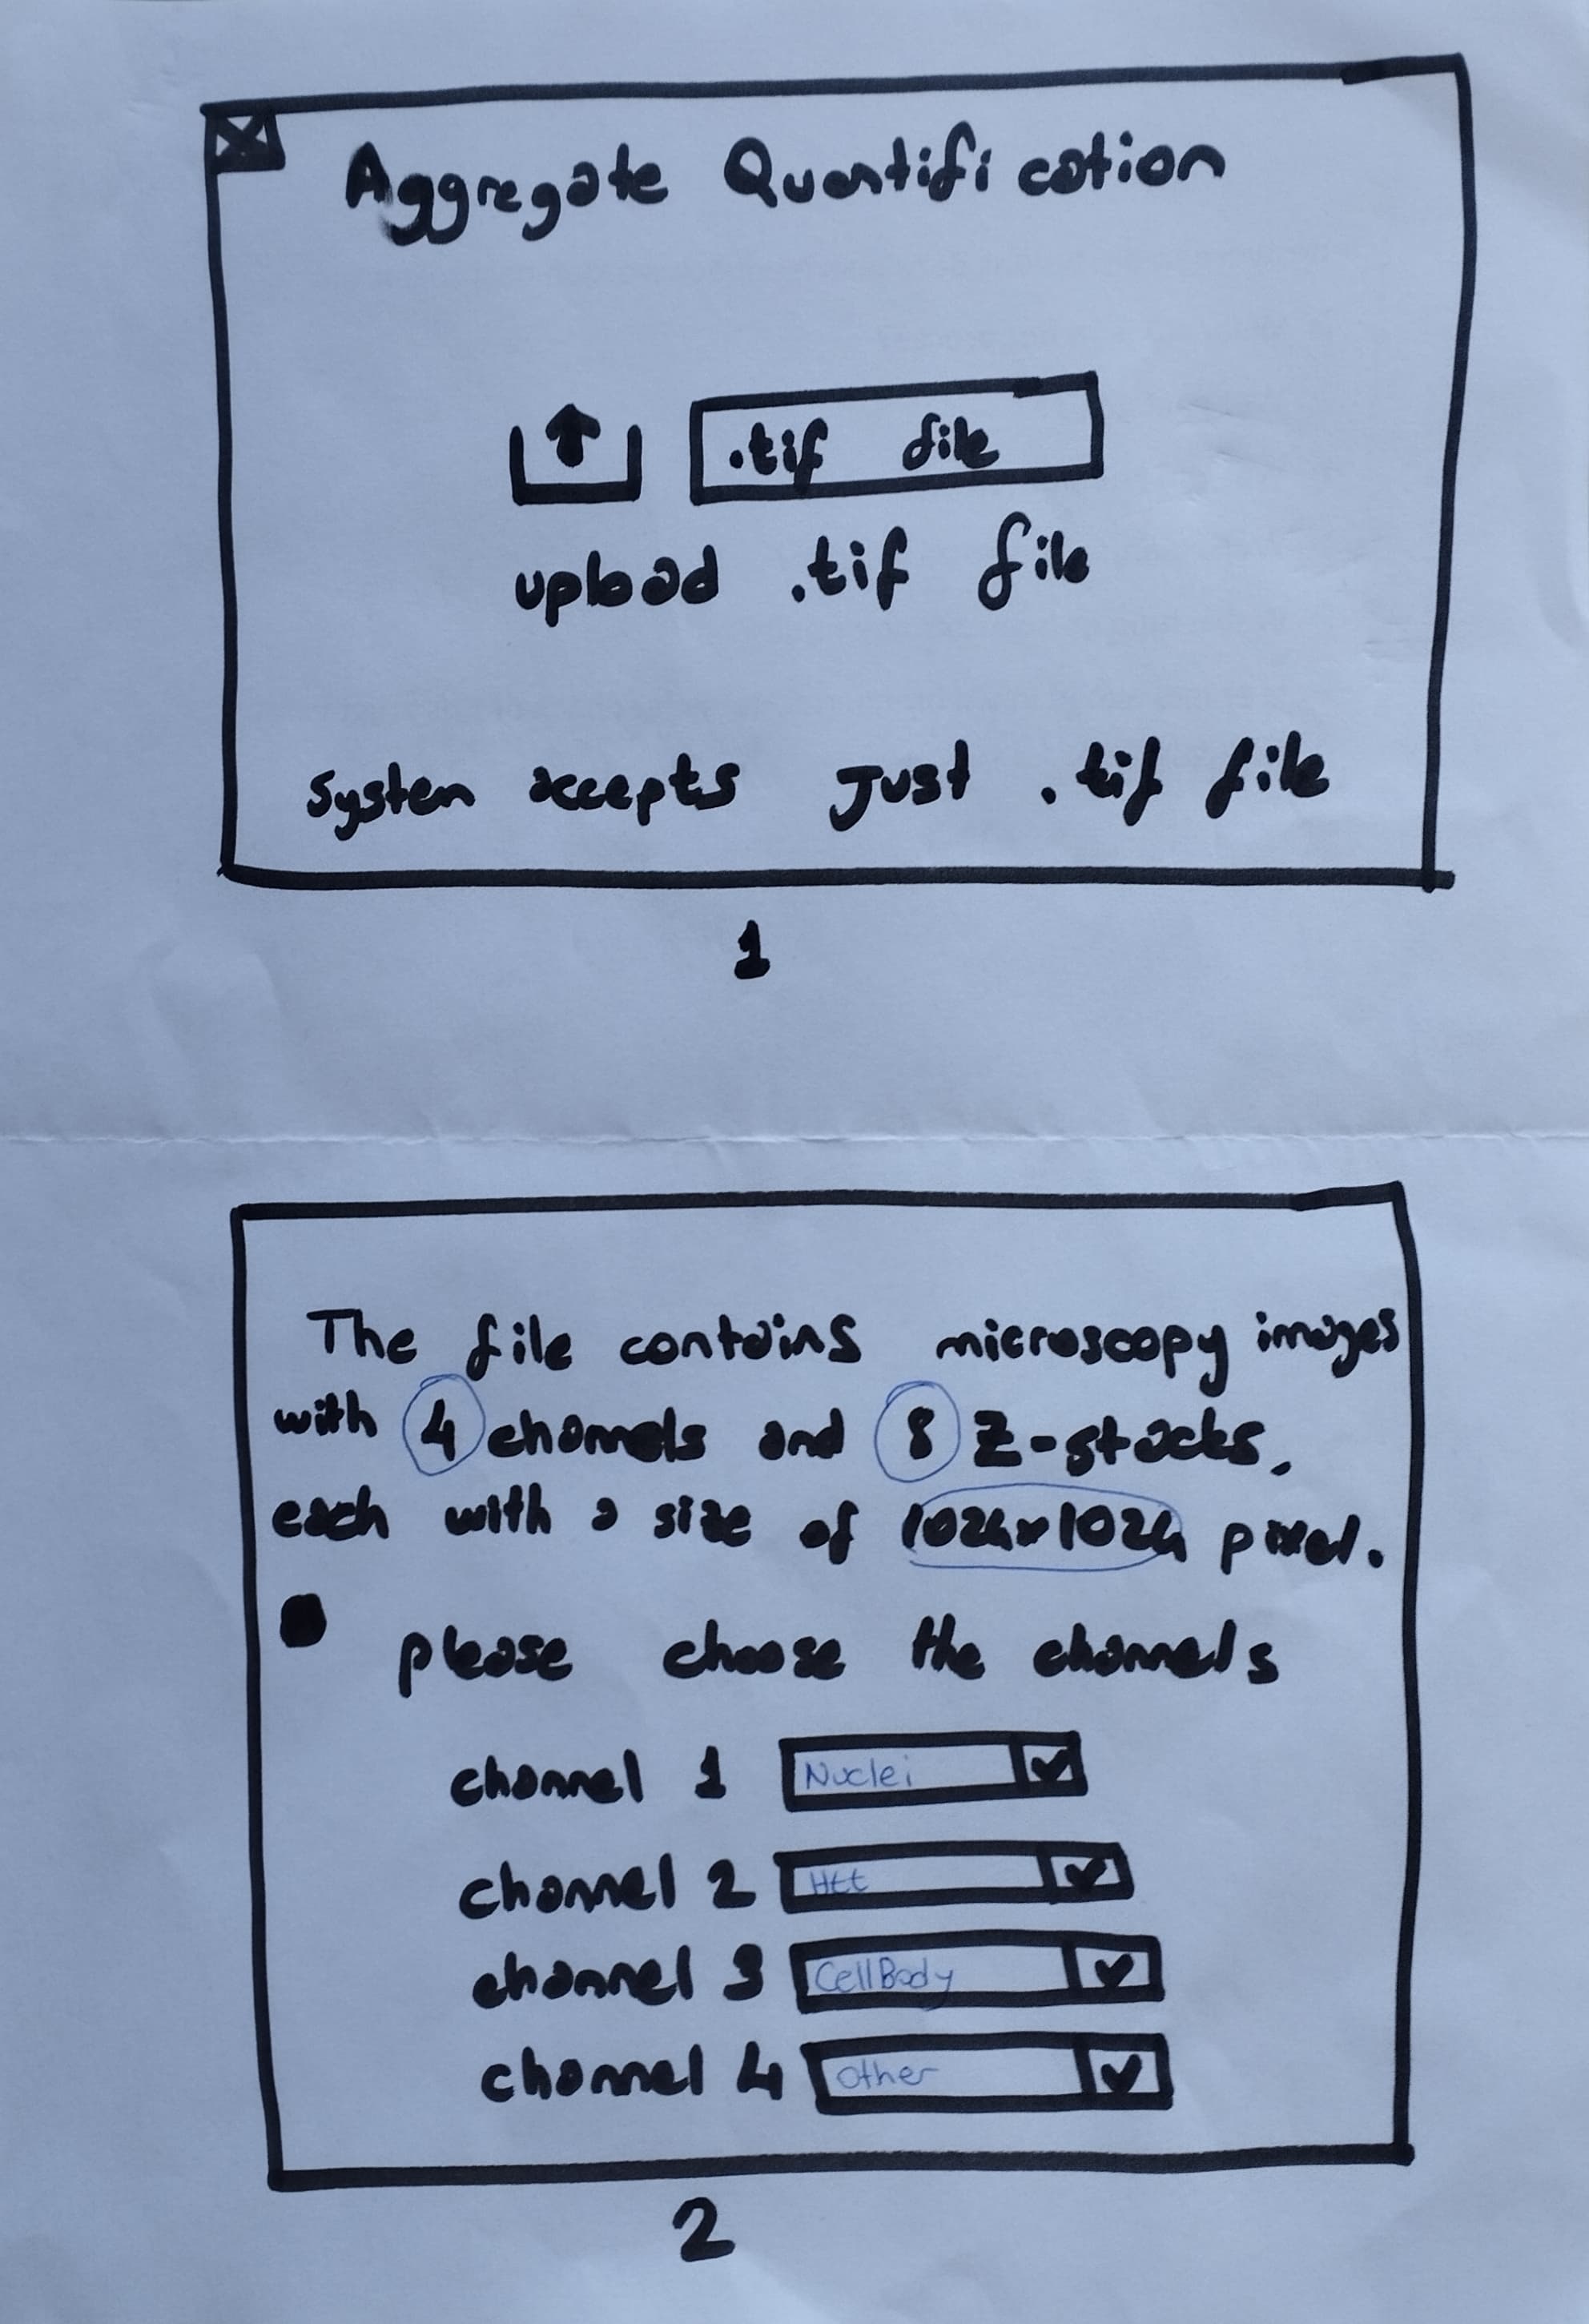 Aggregate Quantification
.tif file
upload .tif file
System accepts Just .tif file
1
The file contains microscopy images
with 4 channels and 8 Z-stacks,
each with a size of 1024x1024 pixel.
please choose the channels
channel 1 Nuclei
channel 2 Htt
channel 3 CellBody
channel 4 Other
2